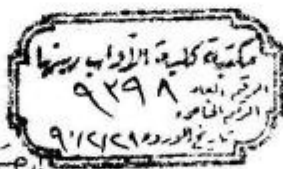 مكتبة كلية الآداب ببنها
الرقم العام ٩٣٩٨
الرقم الخاص
تاريخ الورود ٩٠/٢/٢٨